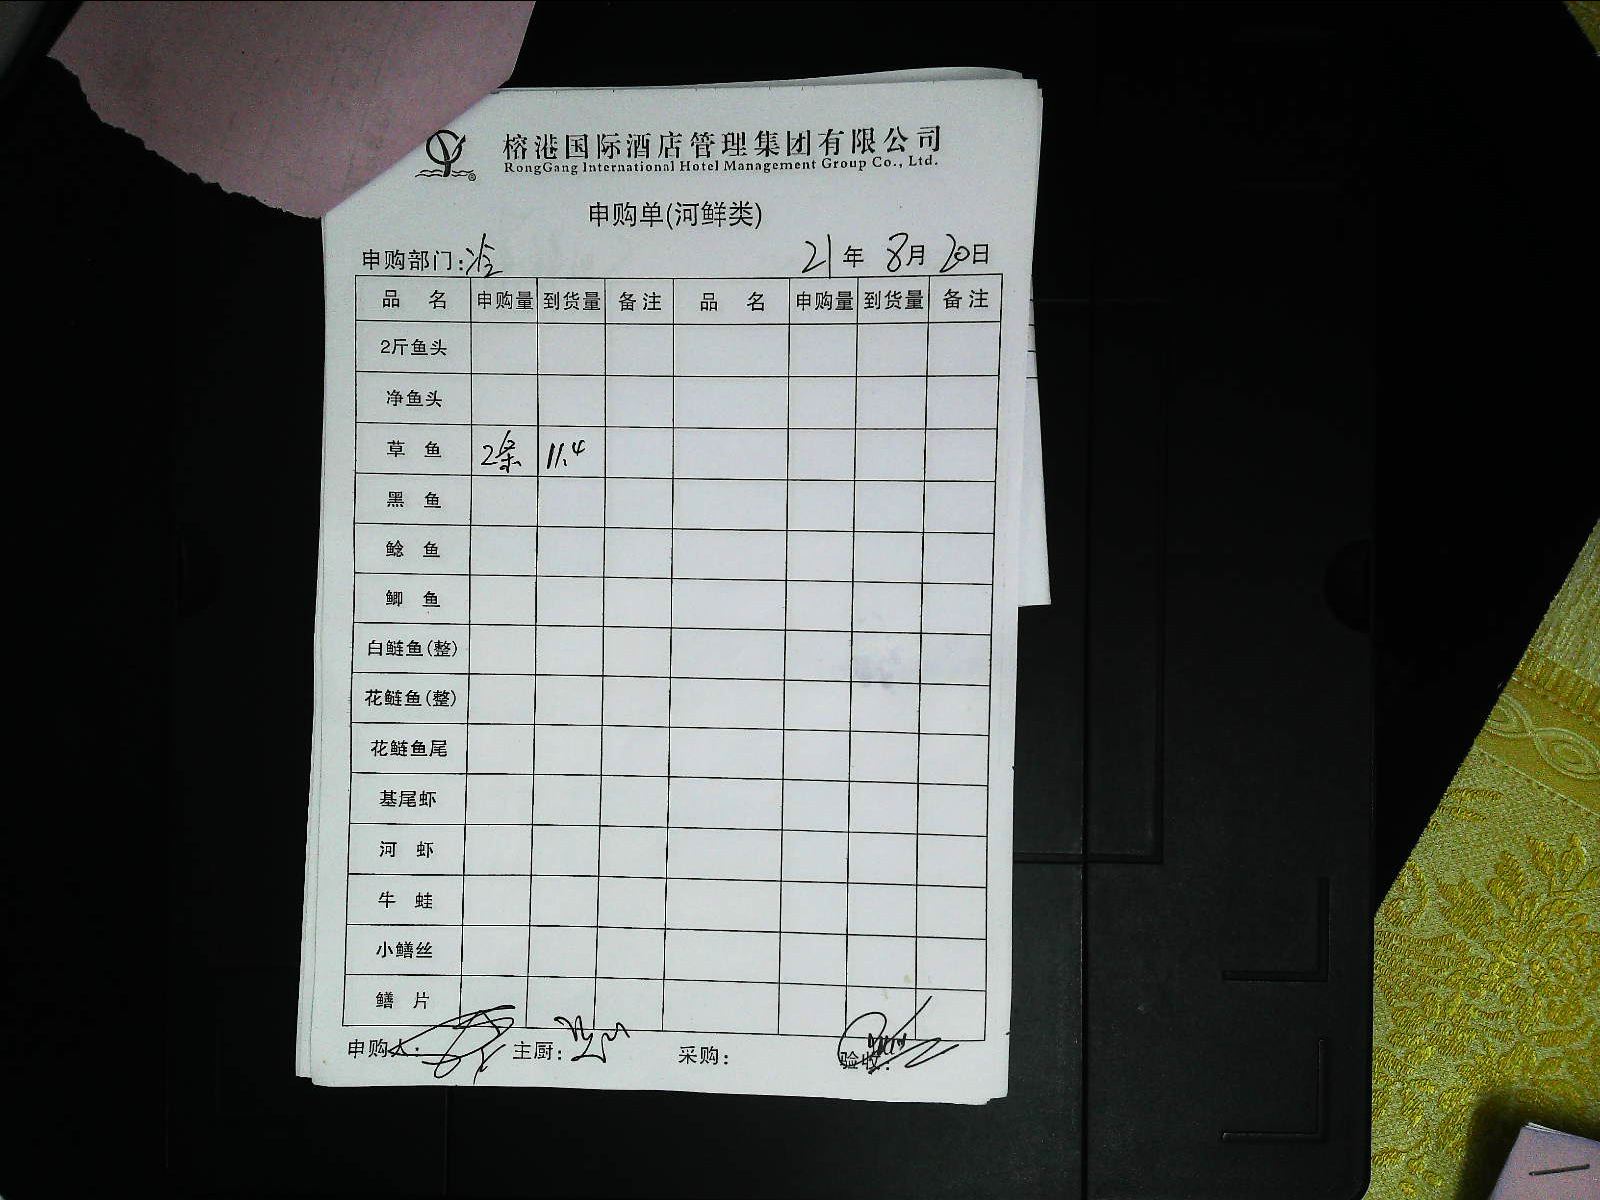 榕港国际酒店管理集团有限公司
RongGang International Hotel Management Group Co., Ltd.
申购单(河鲜类)
申购部门:冷 21年 8月 20日
品 名 申购量 到货量 备注 品 名 申购量 到货量 备注
2斤鱼头
净鱼头
草 鱼 2条 11.4
黑 鱼
鲶 鱼
鲫 鱼
白鲢鱼(整)
花鲢鱼(整)
花鲢鱼尾
基尾虾
河 虾
牛 蛙
小鳝丝
鳝 片
申购人: 主厨: 采购: 验收: